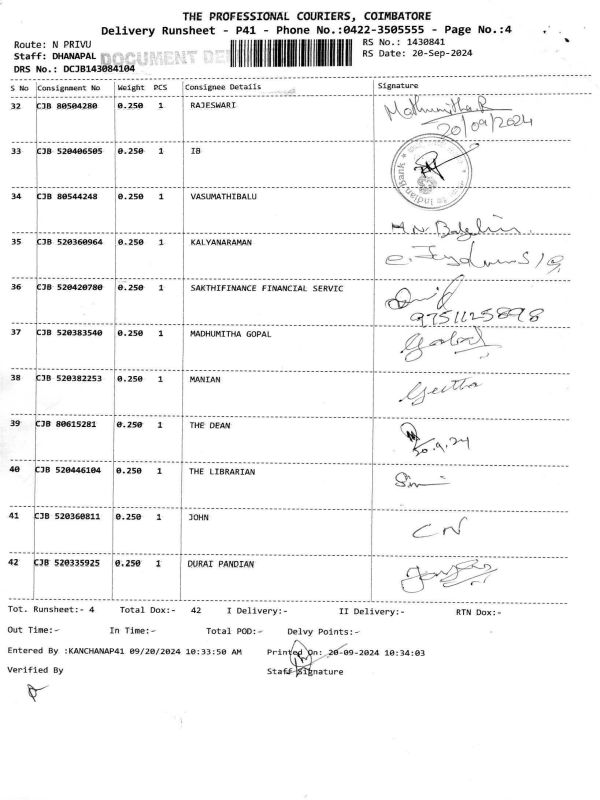 THE PROFESSIONAL COURIERS, COIMBATORE
Delivery Runsheet - P41 - Phone No.:0422-3505555 - Page No.:4
Route: N PRIVU RS No.: 1430841
Staff: DHANAPAL DOCUMENT DE RS Date: 20-Sep-2024
DRS No.: DCJB143084104
S No Consignment No Weight PCS Consignee Details Signature
32 CJB 80504280 0.250 1 RAJESWARI Mathumitha R
20/09/2024
33 CJB 520406505 0.250 1 IB Indian Bank
34 CJB 80544248 0.250 1 VASUMATHIBALU
35 CJB 520360964 0.250 1 KALYANARAMAN
36 CJB 520420780 0.250 1 SAKTHIFINANCE FINANCIAL SERVIC
9751125898
37 CJB 520383540 0.250 1 MADHUMITHA GOPAL
38 CJB 520382253 0.250 1 MANIAN Geetha
39 CJB 80615281 0.250 1 THE DEAN
20.9.24
40 CJB 520446104 0.250 1 THE LIBRARIAN
41 CJB 520360811 0.250 1 JOHN CN
42 CJB 520335925 0.250 1 DURAI PANDIAN
Tot. Runsheet:- 4 Total Dox:- 42 I Delivery:- II Delivery:- RTN Dox:-
Out Time:- In Time:- Total POD:- Delvy Points:-
Entered By :KANCHANAP41 09/20/2024 10:33:50 AM Printed On: 20-09-2024 10:34:03
Verified By Staff Signature